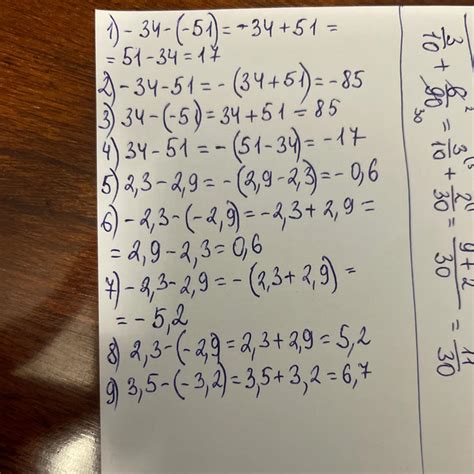 1) - 34 - (-51) = -34 + 51 =
= 51 - 34 = 17
2) - 34 - 51 = - (34 + 51) = - 85
3) 34 - (-51) = 34 + 51 = 85
4) 34 - 51 = - (51 - 34) = - 17
5) 2,3 - 2,9 = - (2,9 - 2,3) = - 0,6
6) - 2,3 - (- 2,9) = - 2,3 + 2,9 =
= 2,9 - 2,3 = 0,6
7) - 2,3 - 2,9 = - (2,3 + 2,9) =
= - 5,2
8) 2,3 - (- 2,9) = 2,3 + 2,9 = 5,2
9) 3,5 - (- 3,2) = 3,5 + 3,2 = 6,7
3/10 + 6/90 = 3/10 + 2/30 = 9 + 2/30 = 11/30